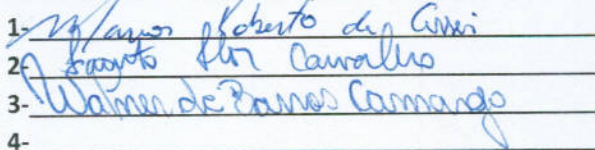 1- Marcos Roberto de Assis
2- Sargento Flor Carvalho
3- Walmer de Barros Camargo
4-